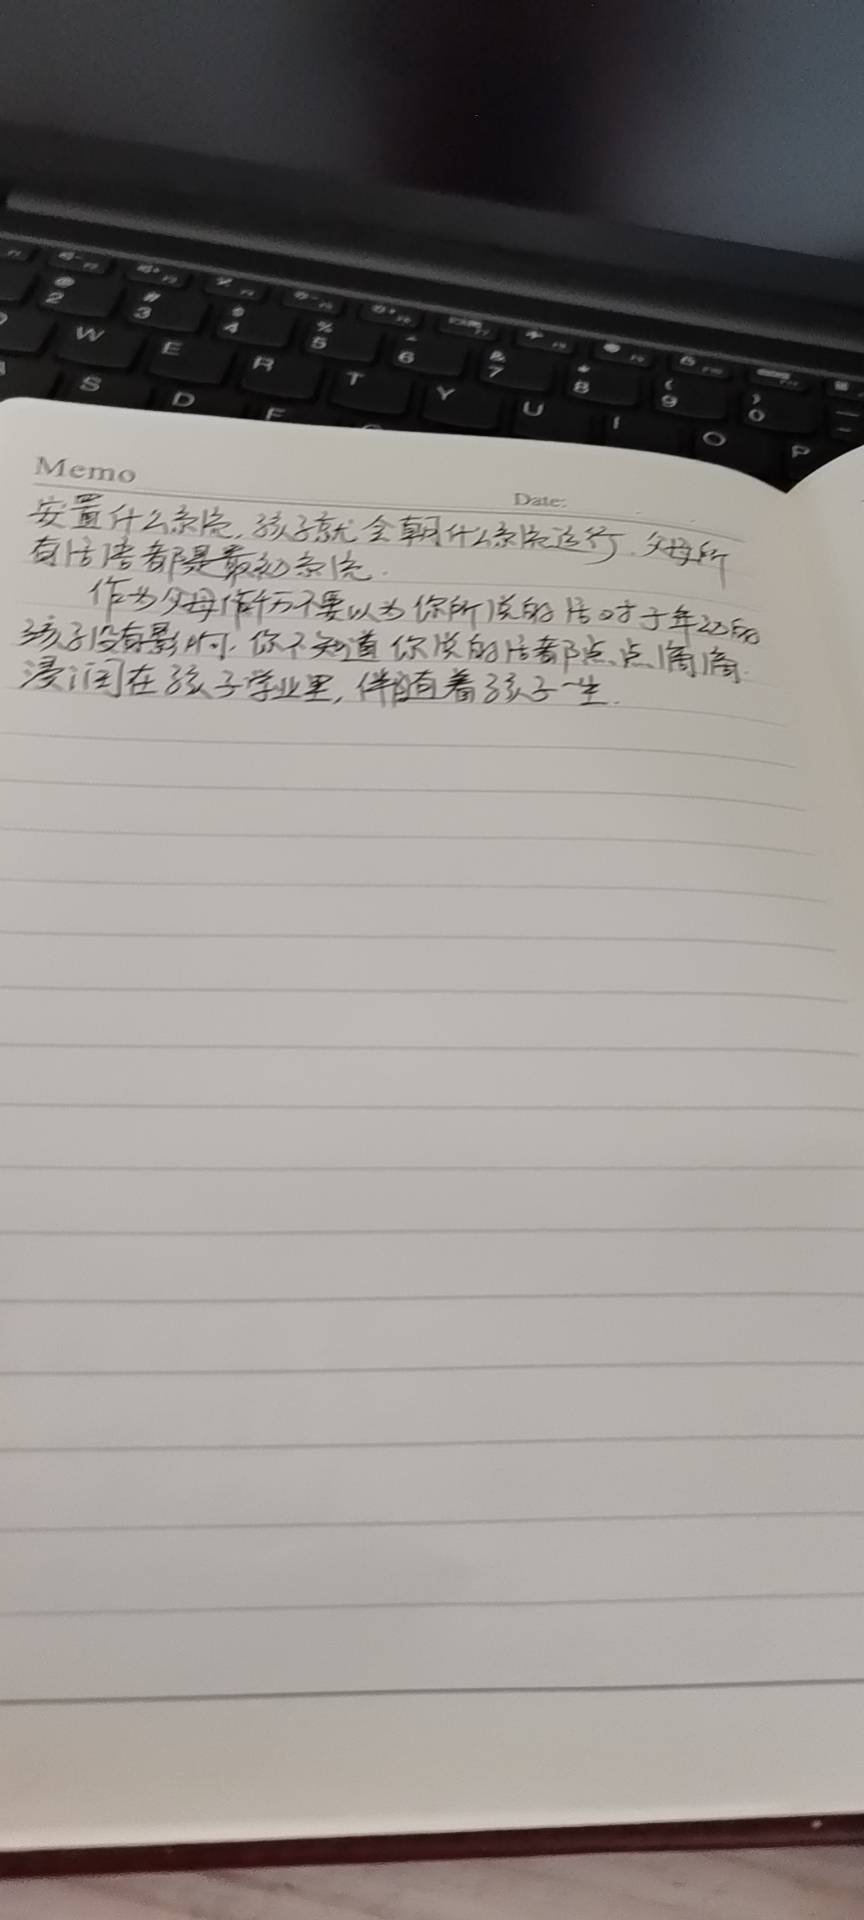 2 3 4 5 6 7 8 9 0
W E R T Y U I O P
S D F
Memo
Date:
安置什么系统,孩子就会朝什么系统运行.父母所
有话语都是最初系统.
作为父母你千万不要以为你所说的话对于年幼的
孩子没有影响.你不知道你说的话都点点滴滴
浸润在孩子学业里,伴随着孩子一生.